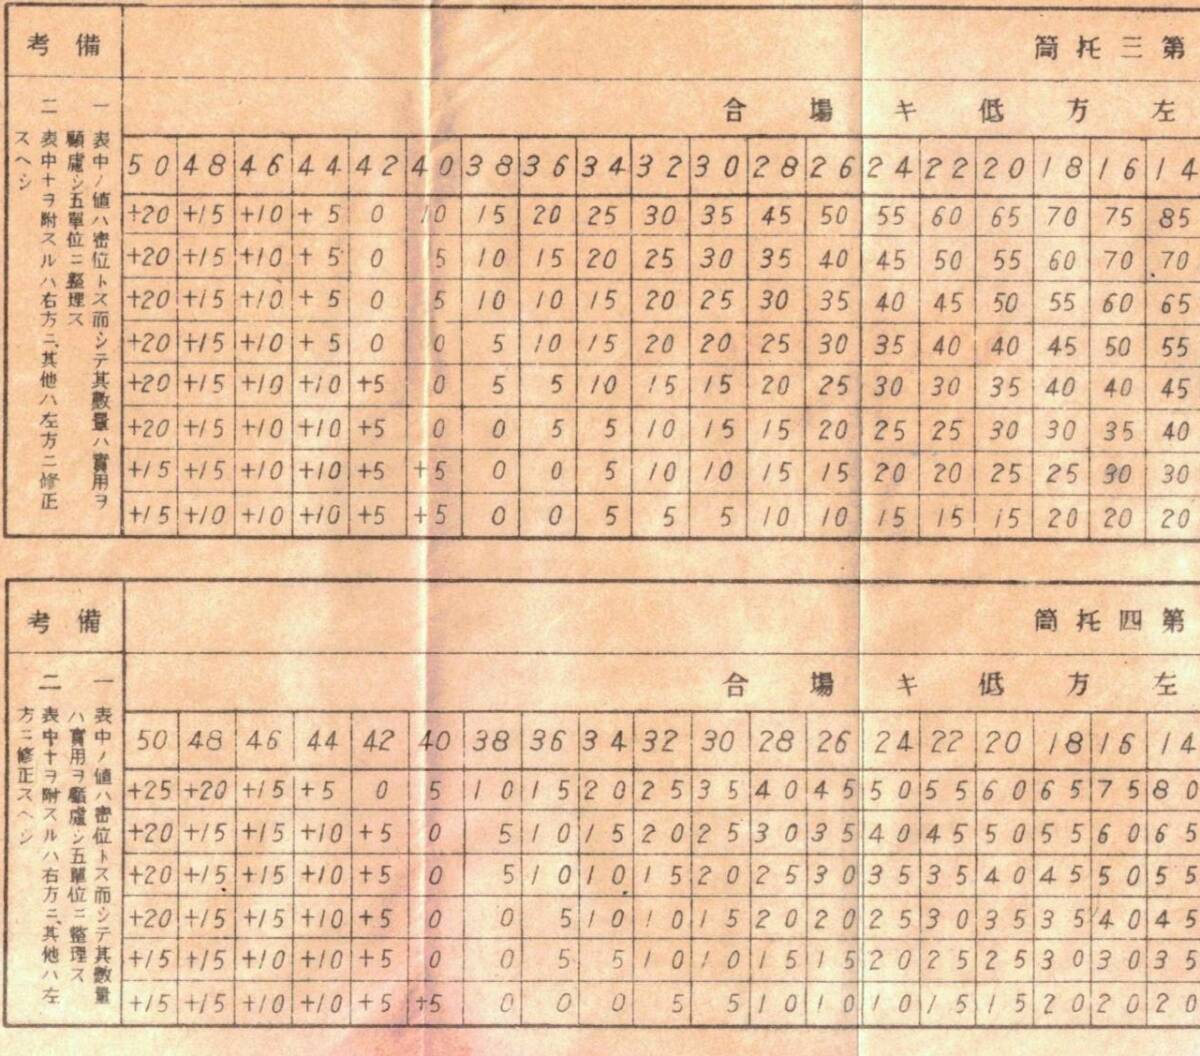 第三托筒
左方低キ場合
50 48 46 44 42 40 38 36 34 32 30 28 26 24 22 20 18 16 14
+20 +15 +10 +5 0 10 15 20 25 30 35 45 50 55 60 65 70 75 85
+20 +15 +10 +5 0 5 10 15 20 25 30 35 40 45 50 55 60 70 70
+20 +15 +10 +5 0 5 10 10 15 20 25 30 35 40 45 50 55 60 65
+20 +15 +10 +5 0 0 5 10 15 20 20 25 30 35 40 40 45 50 55
+20 +15 +10 +10 +5 0 5 5 10 15 15 20 25 30 30 35 40 40 45
+20 +15 +10 +10 +5 0 0 5 5 10 15 15 20 25 25 30 30 35 40
+15 +15 +10 +10 +5 +5 0 0 5 10 10 15 15 20 20 25 25 30 30
+15 +10 +10 +10 +5 +5 0 0 5 5 5 10 10 15 15 15 20 20 20
備考
一 表中ノ値ハ密位トス而シテ其數量ハ實用ヲ
顧慮シ五單位ニ整理ス
二 表中+ヲ附スルハ右方ニ、其他ハ左方ニ修正
スヘシ
第四托筒
左方低キ場合
50 48 46 44 42 40 38 36 34 32 30 28 26 24 22 20 18 16 14
+25 +20 +15 +5 0 5 10 15 20 25 35 40 45 50 55 60 65 75 80
+20 +15 +15 +10 +5 0 5 10 15 20 25 30 35 40 45 50 55 60 65
+20 +15 +15 +10 +5 0 5 10 10 15 20 25 30 35 35 40 45 50 55
+20 +15 +15 +10 +5 0 0 5 10 10 15 20 20 25 30 35 35 40 45
+15 +15 +10 +10 +5 0 0 5 5 10 10 15 15 20 25 25 30 30 35
+15 +15 +10 +10 +5 +5 0 0 0 5 5 10 10 10 15 15 20 20 20
備考
一 表中ノ値ハ密位トス而シテ其數量
ハ實用ヲ顧慮シ五單位ニ整理ス
二 表中+ヲ附スルハ右方ニ、其他ハ左
方ニ修正スヘシ